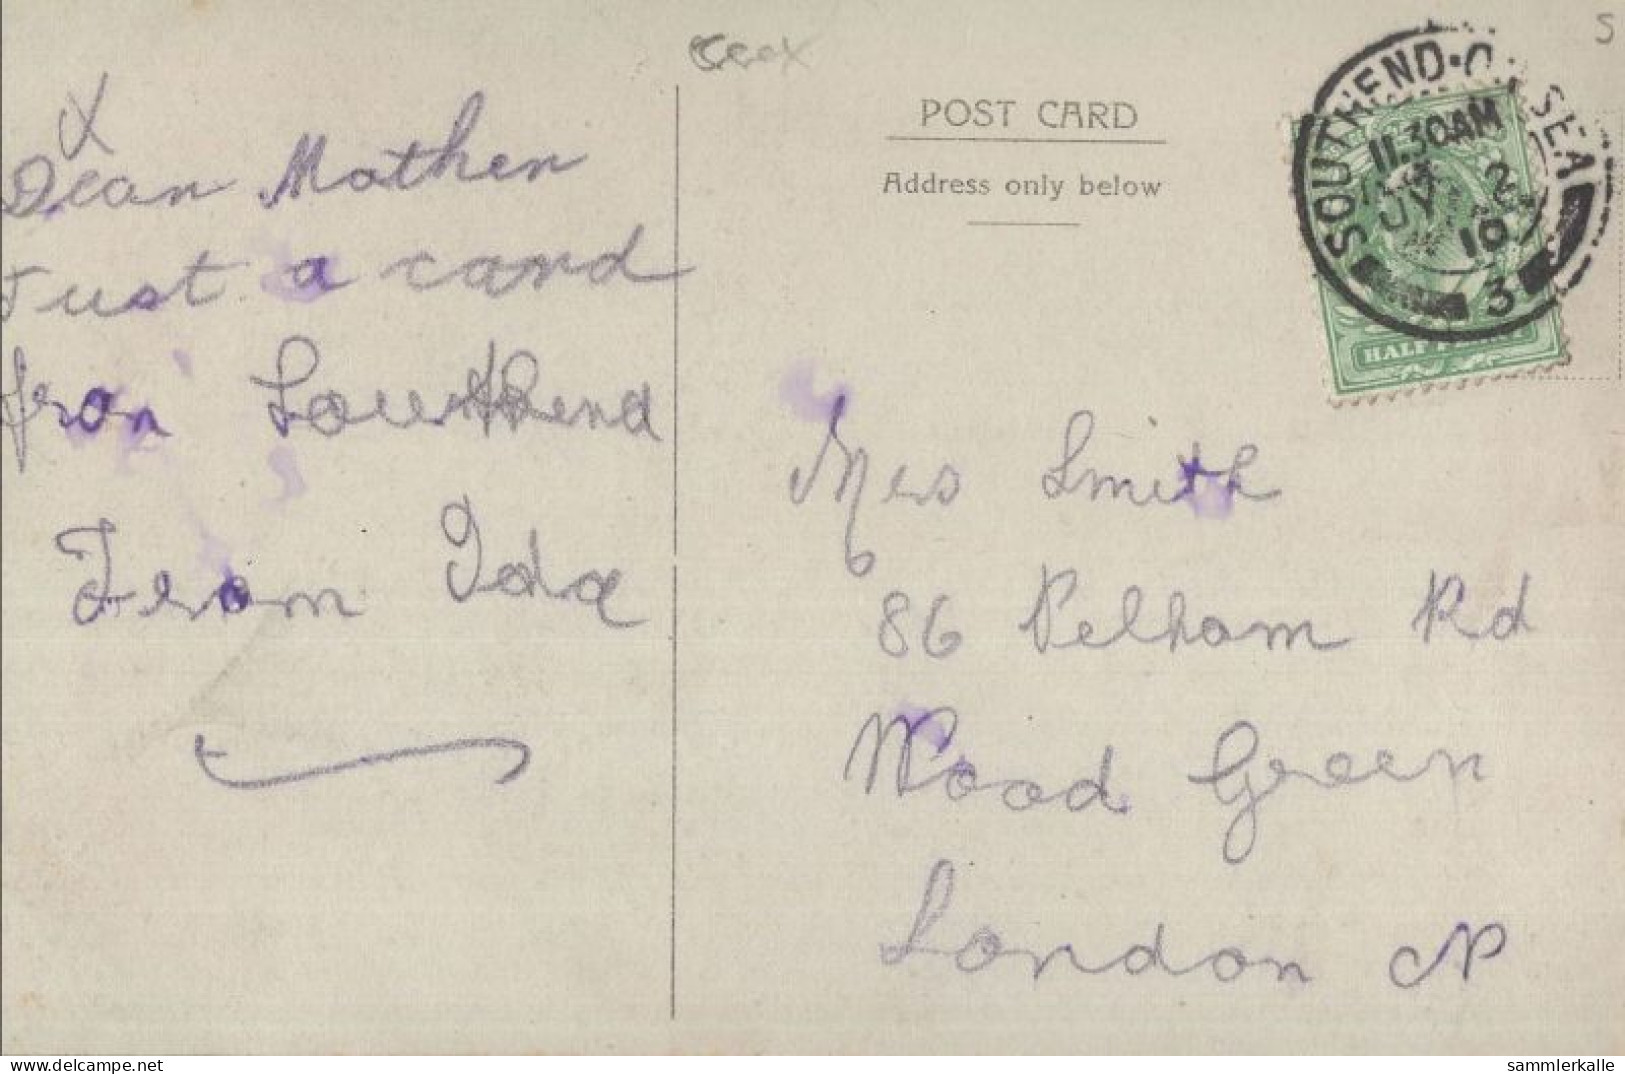 x
Dear Mother
Just a card
from Southend
From Ida
POST CARD
Address only below
SOUTHEND-ON-SEA
11.30AM
JY 2
10
3
HALF PENNY
Mrs Smith
86 Pelham Rd
Wood Green
London N
5
www.delcampe.net
sammlerkalle